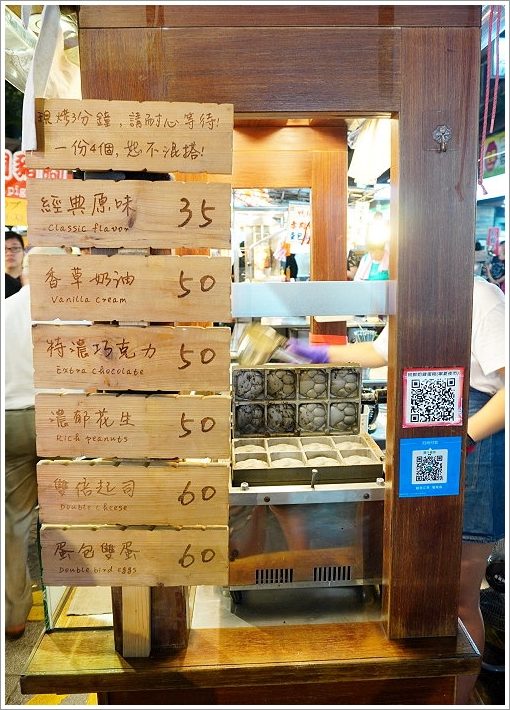 現烤3分鐘,請耐心等待!
一份4個,恕不混搭!
經典原味 35
Classic flavor
香草奶油 50
Vanilla cream
特濃巧克力 50
Extra chocolate
濃郁花生 50
Rich peanuts
雙倍起司 60
Double cheese
蛋包雙蛋 60
Double bird eggs